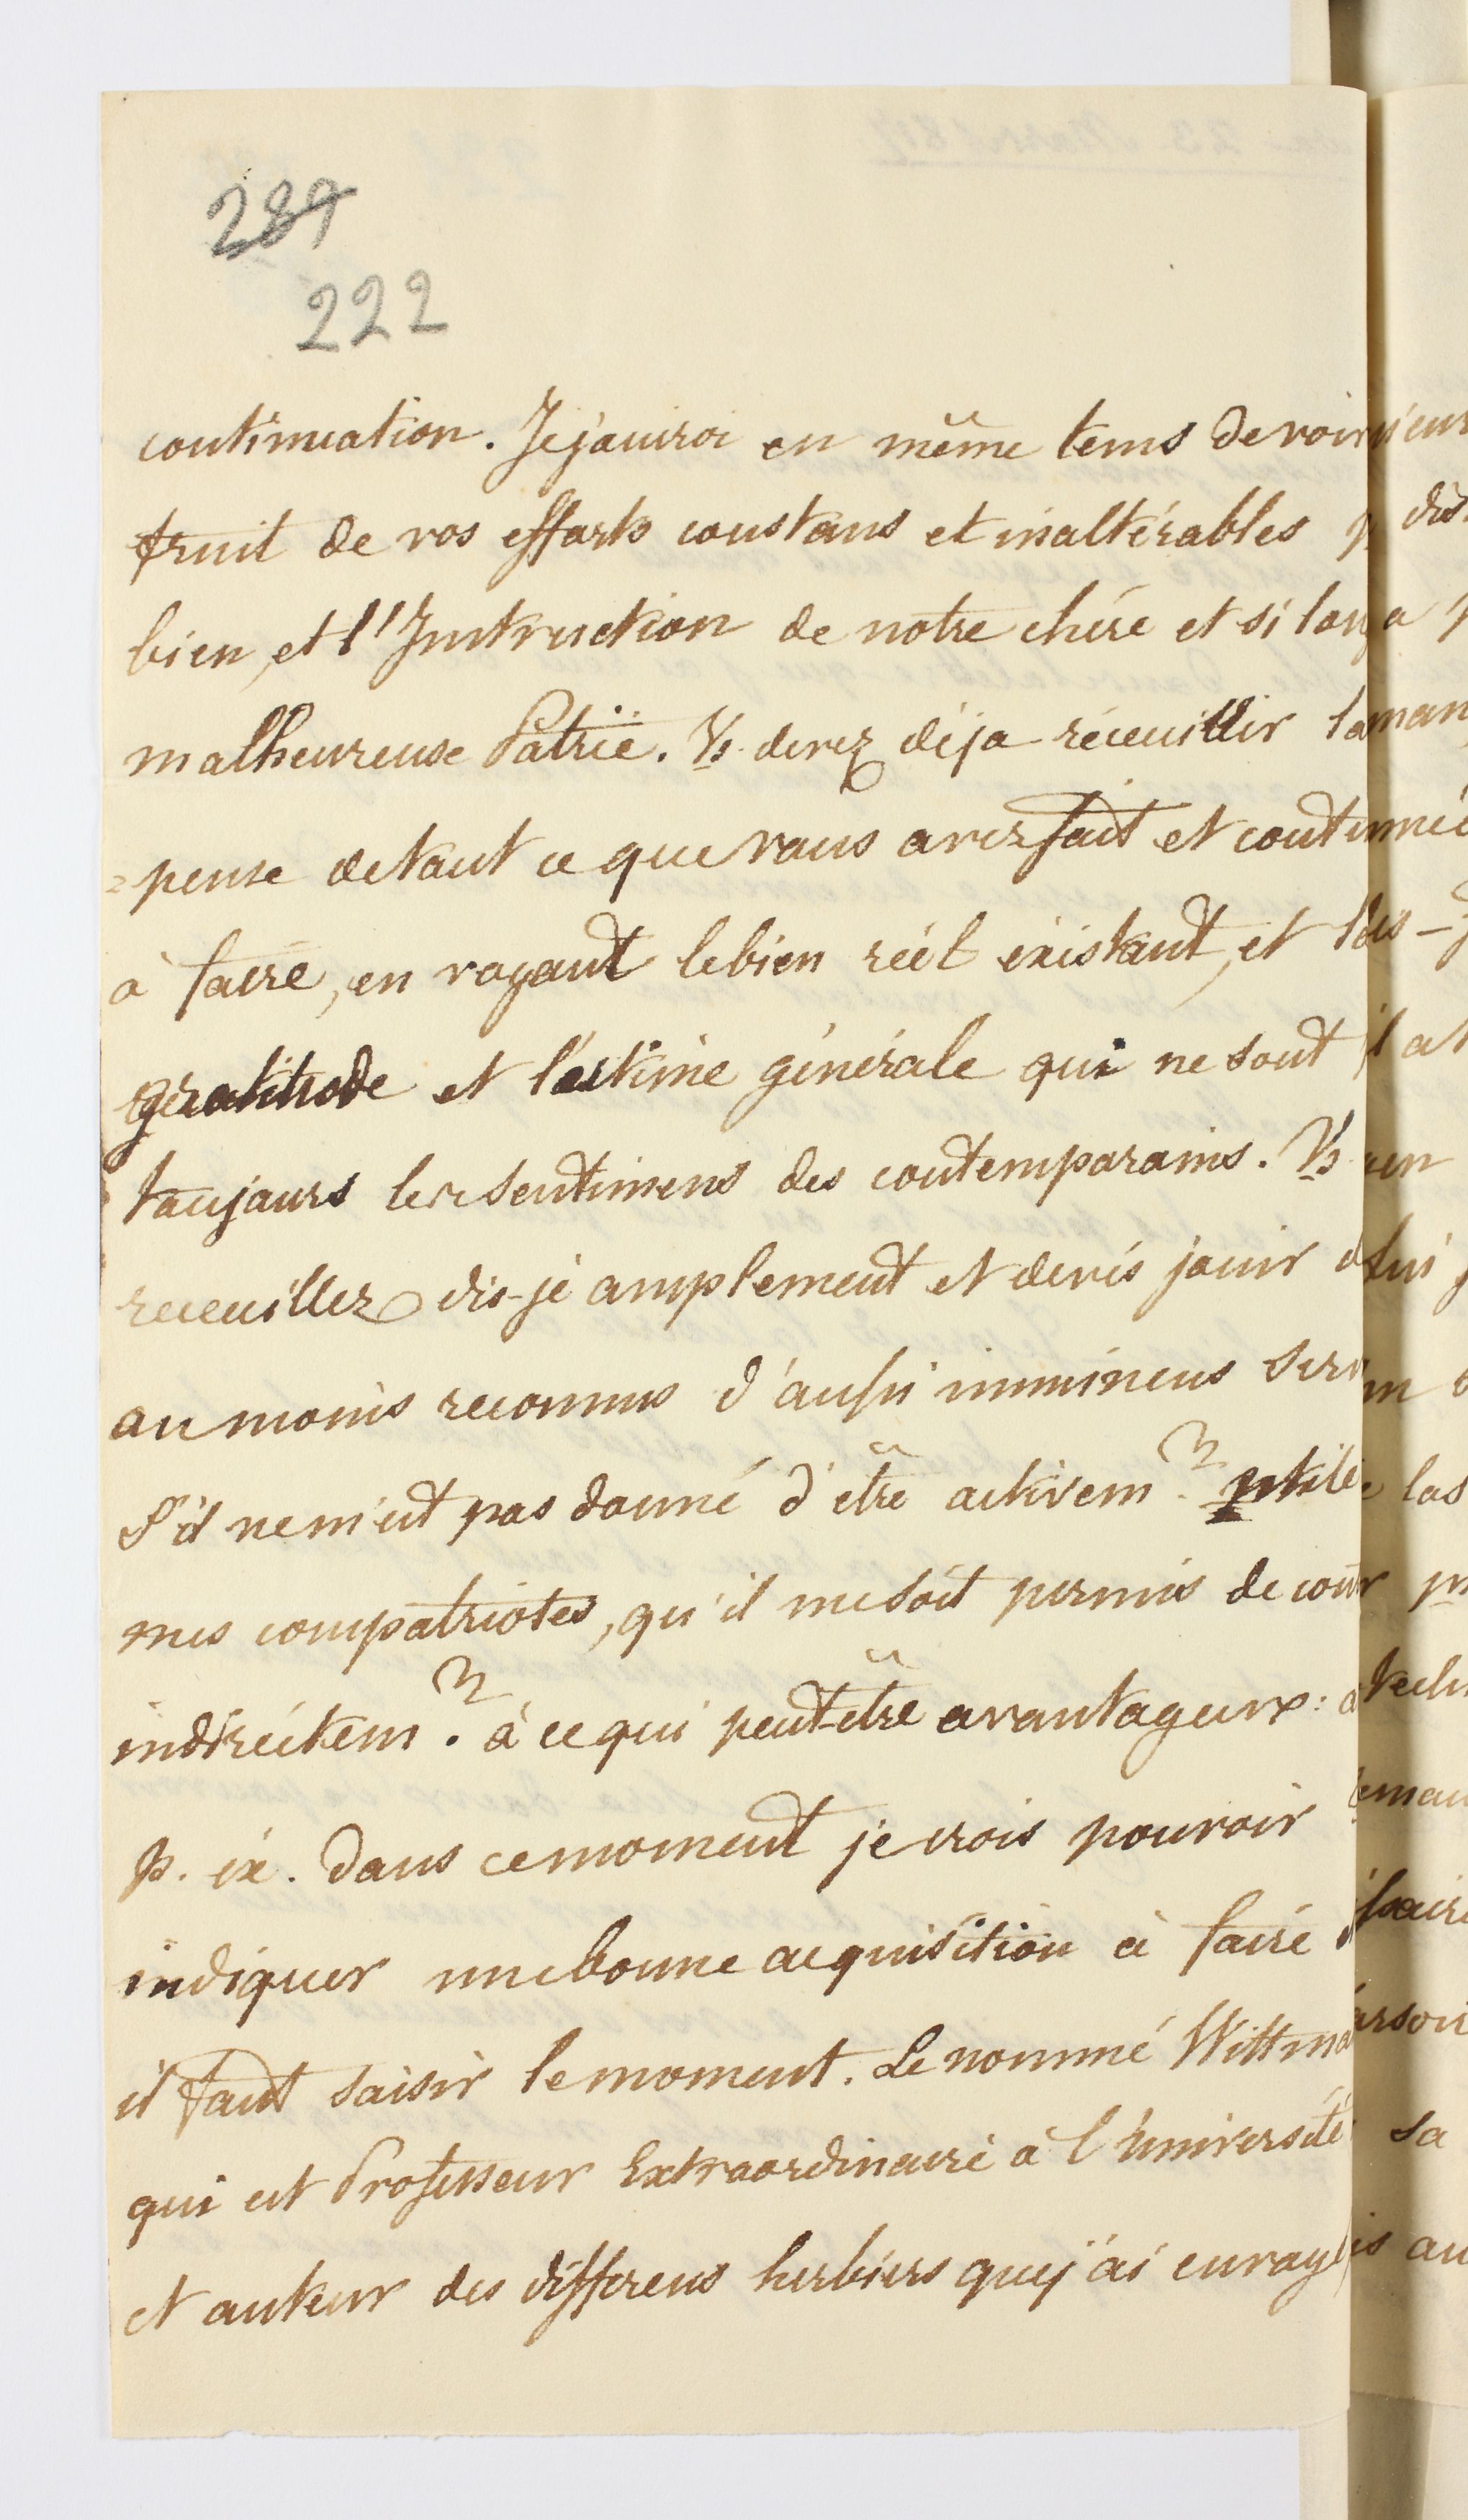 287
222
continuation. Je jouiroi en même tems de voir
fruit de vos efforts constans et inaltérables
bien, et l'Instruction de notre chére et si lon
malheureuse Patrie. Vs. devez déja réceuillir la
pense de tout ce que vous avez fait et contin
à faire, en voyant le bien réel éxistant, et
gratitude et l'estime générale qui ne sont
toujours les sentimens des contemporains. Vs
receuillez dis-je amplement et devés jouir
au moins reconnus d'aussi imminens serv
S'il ne m'est pas donné d'être activem.t utile
mes compatriotes, qu'il me soit permis de con
indirectem.t à ce qui peut-être avantageux:
p. ex. dans ce moment je crois pouvoir
indiquer une bonne acquisition à faire
il faut saisir le moment. Le nommé Wittma
qui est Professeur Extraordinaire à l'Université
et auteur des differens herbiers que j'ai envoy